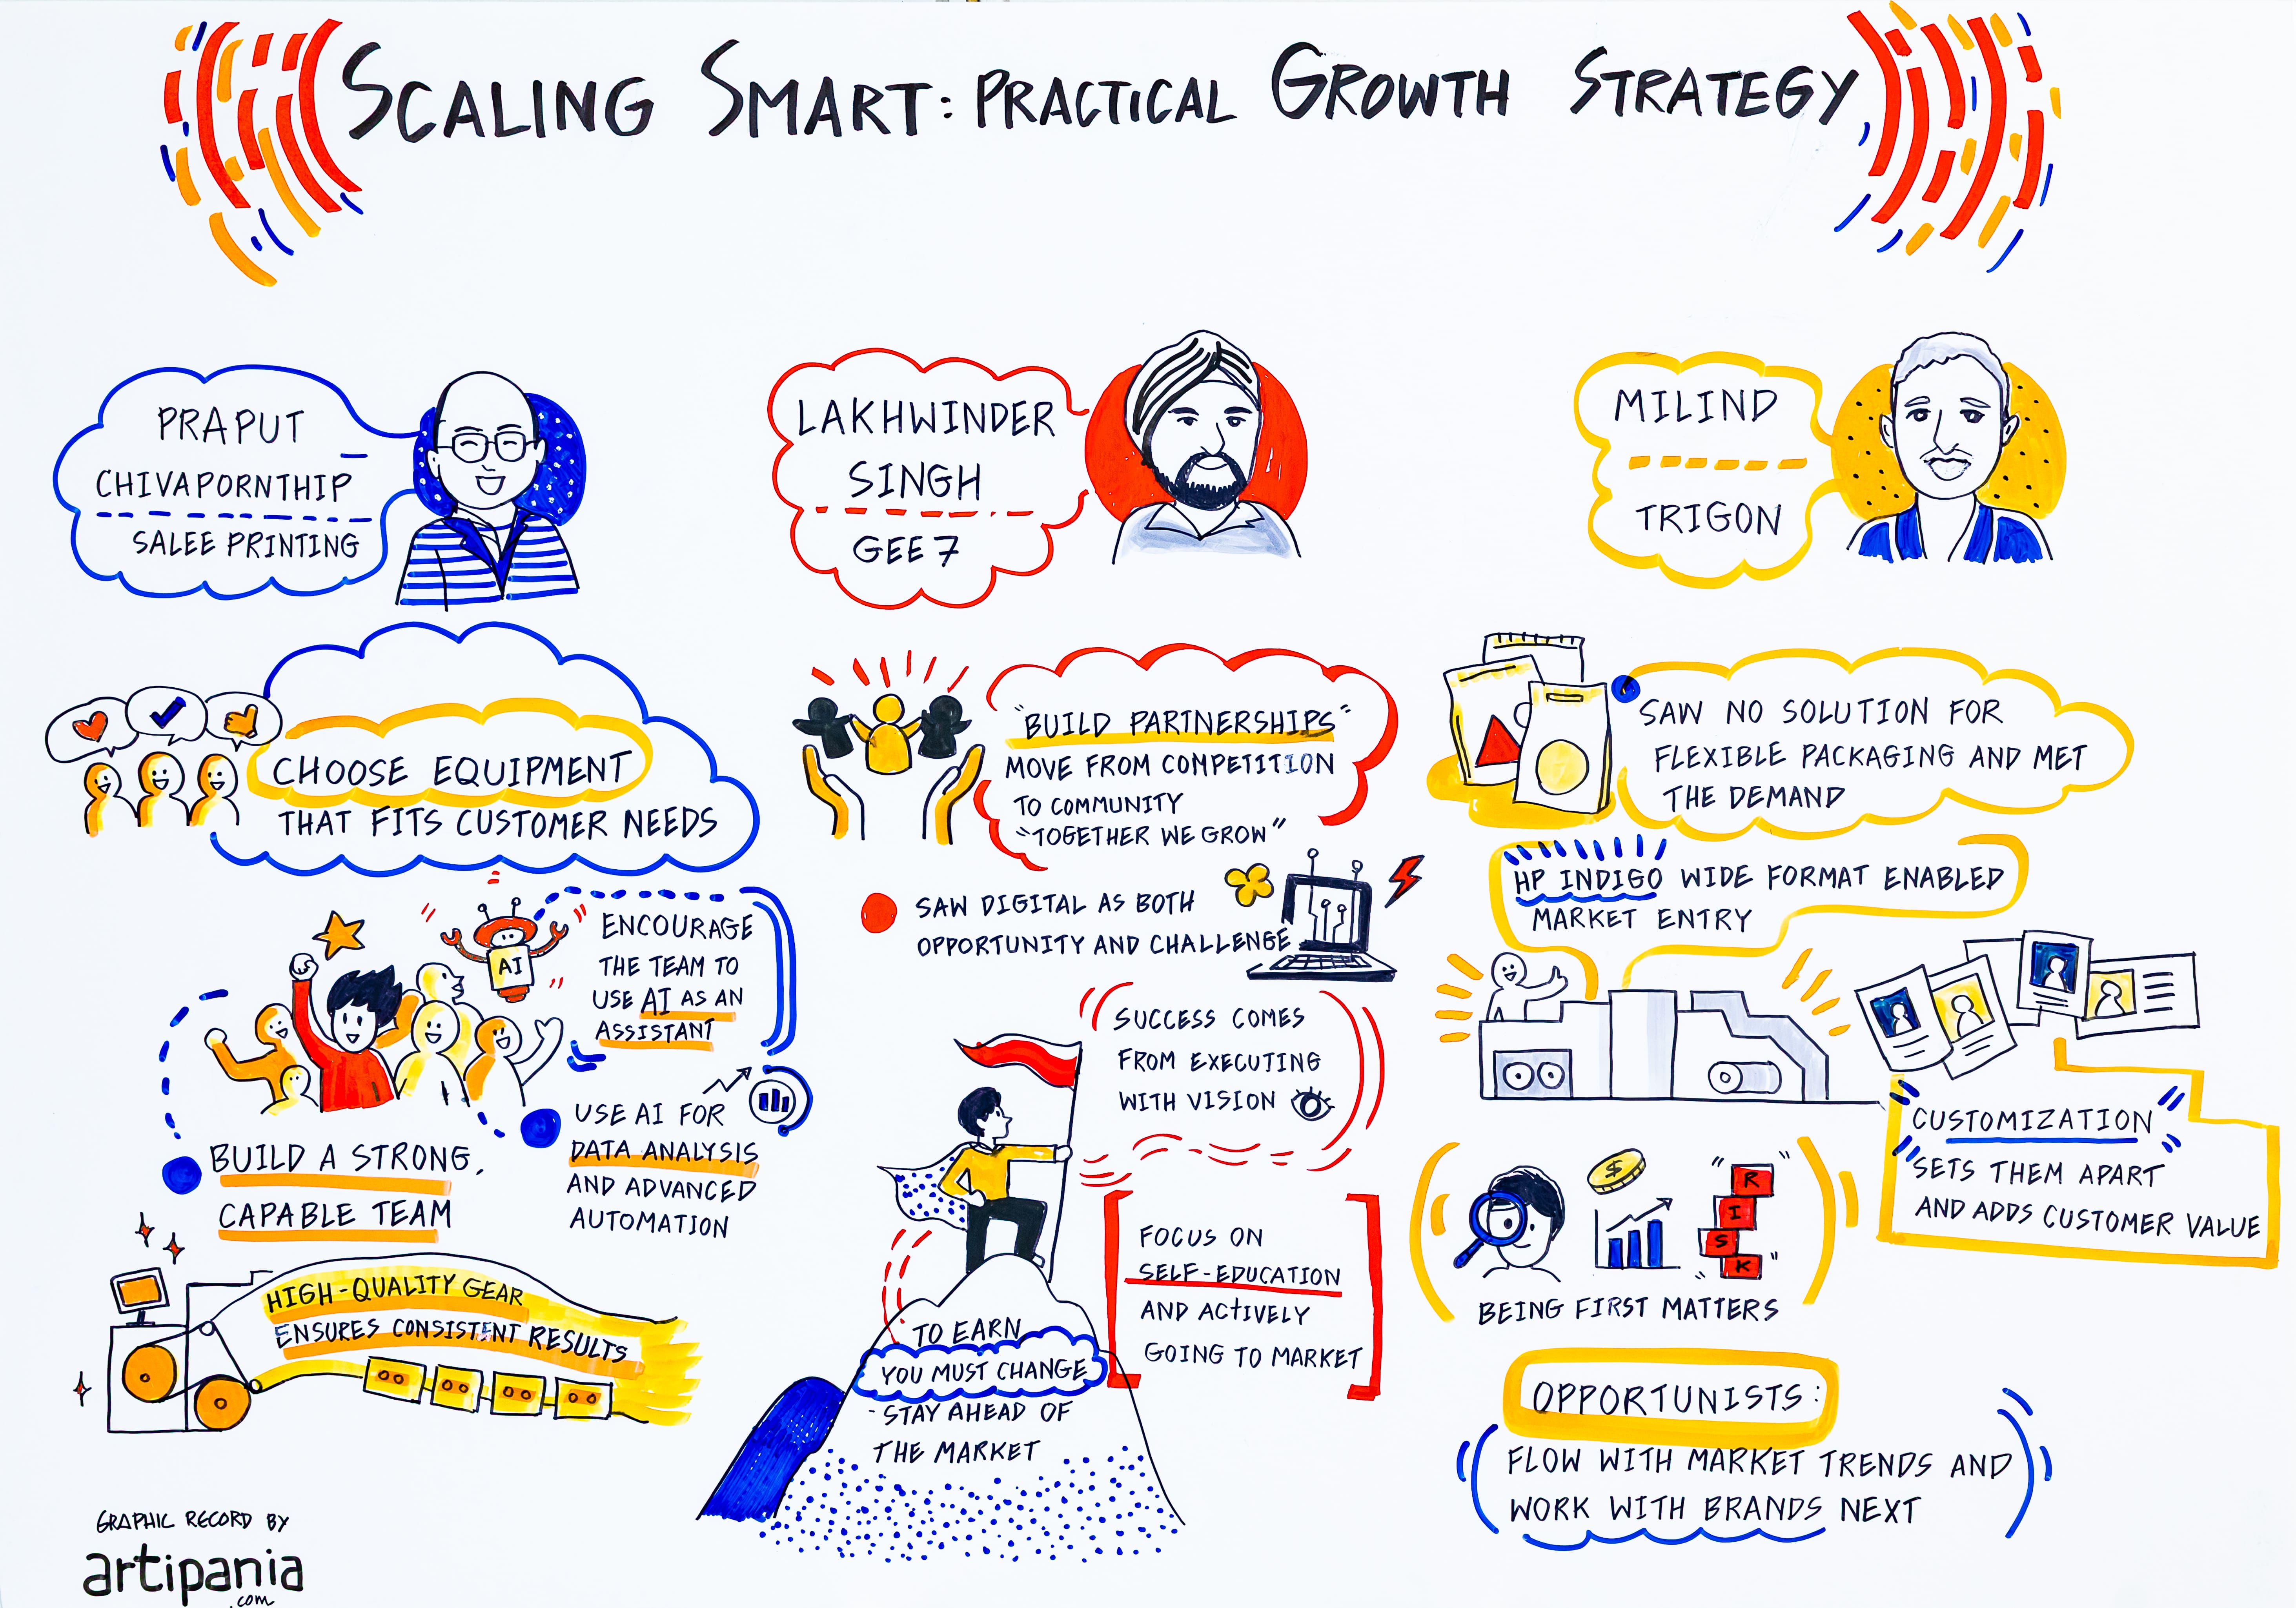 SCALING SMART: PRACTICAL GROWTH STRATEGY
PRAPUT
CHIVAPORNTHIP
SALEE PRINTING
CHOOSE EQUIPMENT
THAT FITS CUSTOMER NEEDS
AI
ENCOURAGE
THE TEAM TO
USE AI AS AN
ASSISTANT
BUILD A STRONG,
CAPABLE TEAM
USE AI FOR
DATA ANALYSIS
AND ADVANCED
AUTOMATION
HIGH-QUALITY GEAR
ENSURES CONSISTENT RESULTS
GRAPHIC RECORD BY
artipania
.com
LAKHWINDER
SINGH
GEE 7
"BUILD PARTNERSHIPS"
MOVE FROM COMPETITION
TO COMMUNITY
"TOGETHER WE GROW"
SAW DIGITAL AS BOTH
OPPORTUNITY AND CHALLENGE
SUCCESS COMES
FROM EXECUTING
WITH VISION
FOCUS ON
SELF-EDUCATION
AND ACTIVELY
GOING TO MARKET
TO EARN
YOU MUST CHANGE
- STAY AHEAD OF
THE MARKET
MILIND
TRIGON
SAW NO SOLUTION FOR
FLEXIBLE PACKAGING AND MET
THE DEMAND
HP INDIGO WIDE FORMAT ENABLED
MARKET ENTRY
CUSTOMIZATION
SETS THEM APART
AND ADDS CUSTOMER VALUE
$
"R"
I
S
"K"
BEING FIRST MATTERS
OPPORTUNISTS:
FLOW WITH MARKET TRENDS AND
WORK WITH BRANDS NEXT